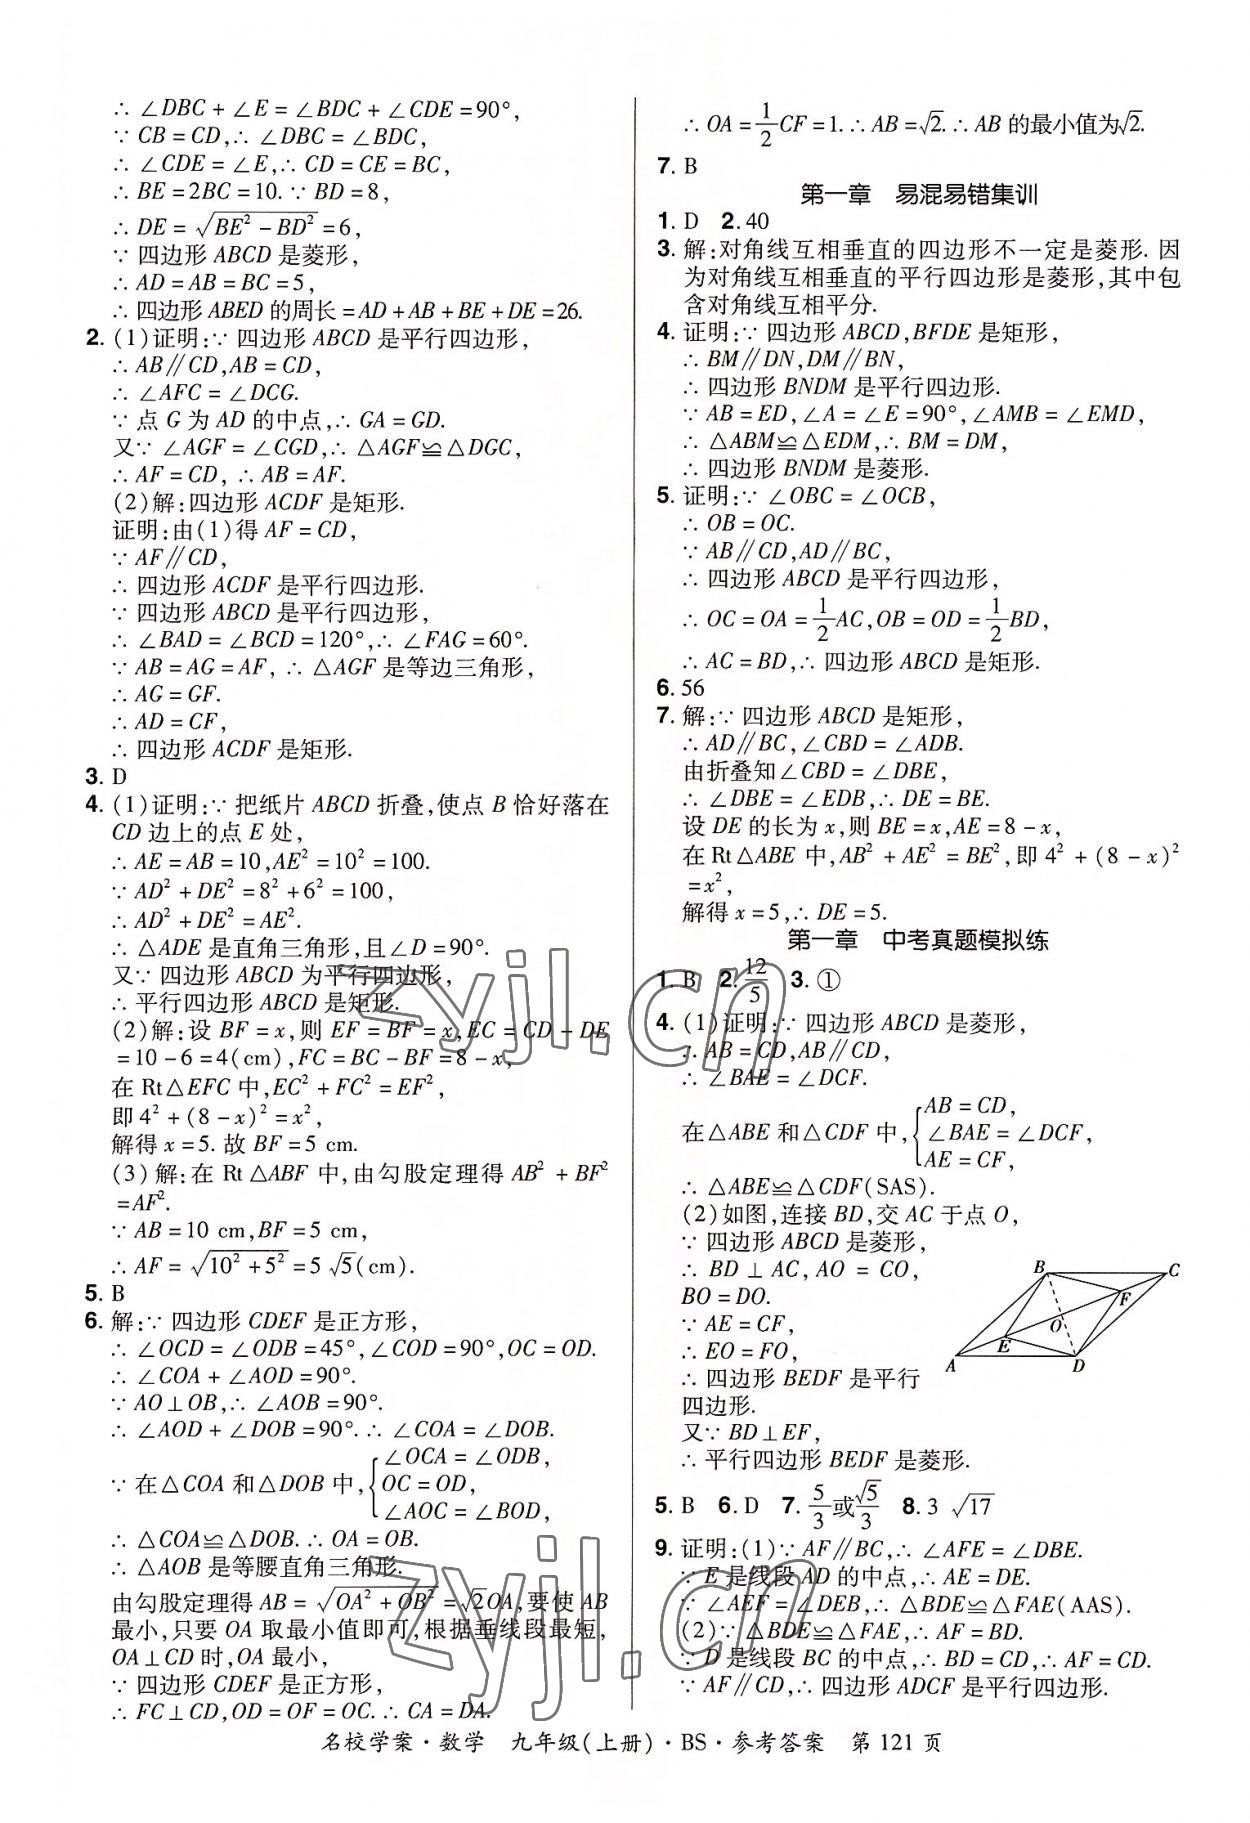 ∴ ∠DBC + ∠E = ∠BDC + ∠CDE = 90°,
∵ CB = CD,∴ ∠DBC = ∠BDC,
∴ ∠CDE = ∠E,∴ CD = CE = BC,
∴ BE = 2BC = 10. ∵ BD = 8,
∴ DE = √(BE² − BD²) = 6,
∵ 四边形 ABCD 是菱形,
∴ AD = AB = BC = 5,
∴ 四边形 ABED 的周长 = AD + AB + BE + DE = 26.
2. (1)证明:∵ 四边形 ABCD 是平行四边形,
∴ AB∥CD,AB = CD,
∴ ∠AFC = ∠DCG.
∵ 点 G 为 AD 的中点,∴ GA = GD.
又∵ ∠AGF = ∠CGD,∴ △AGF≌△DGC,
∴ AF = CD, ∴ AB = AF.
(2)解:四边形 ACDF 是矩形.
证明:由(1)得 AF = CD,
∵ AF∥CD,
∴ 四边形 ACDF 是平行四边形.
∵ 四边形 ABCD 是平行四边形,
∴ ∠BAD = ∠BCD = 120°,∴ ∠FAG = 60°.
∵ AB = AG = AF, ∴ △AGF 是等边三角形,
∴ AG = GF.
∴ AD = CF,
∴ 四边形 ACDF 是矩形.
3. D
4. (1)证明:∵ 把纸片 ABCD 折叠,使点 B 恰好落在
CD 边上的点 E 处,
∴ AE = AB = 10,AE² = 10² = 100.
∵ AD² + DE² = 8² + 6² = 100,
∴ AD² + DE² = AE².
∴ △ADE 是直角三角形,且∠D = 90°.
又∵ 四边形 ABCD 为平行四边形,
∴ 平行四边形 ABCD 是矩形.
(2)解:设 BF = x,则 EF = BF = x,EC = CD − DE
= 10 − 6 = 4(cm),FC = BC − BF = 8 − x,
在 Rt△EFC 中,EC² + FC² = EF²,
即 4² + (8 − x)² = x²,
解得 x = 5. 故 BF = 5 cm.
(3)解:在 Rt △ABF 中,由勾股定理得 AB² + BF²
= AF².
∵ AB = 10 cm,BF = 5 cm,
∴ AF = √(10² + 5²) = 5√5(cm).
5. B
6. 解:∵ 四边形 CDEF 是正方形,
∴ ∠OCD = ∠ODB = 45°,∠COD = 90°,OC = OD.
∴ ∠COA + ∠AOD = 90°.
∵ AO⊥OB,∴ ∠AOB = 90°.
∴ ∠AOD + ∠DOB = 90°. ∴ ∠COA = ∠DOB.
∵ 在△COA 和△DOB 中,{∠OCA = ∠ODB,
OC = OD,
∠AOC = ∠BOD,
∴ △COA≌△DOB. ∴ OA = OB.
∴ △AOB 是等腰直角三角形.
由勾股定理得 AB = √(OA² + OB²) = √2OA,要使 AB
最小,只要 OA 取最小值即可,根据垂线段最短,
OA⊥CD 时,OA 最小,
∵ 四边形 CDEF 是正方形,
∴ FC⊥CD,OD = OF = OC. ∴ CA = DA.
∴ OA = 1/2 CF = 1. ∴ AB = √2. ∴ AB 的最小值为√2.
7. B
第一章 易混易错集训
1. D 2. 40
3. 解:对角线互相垂直的四边形不一定是菱形. 因
为对角线互相垂直的平行四边形是菱形,其中包
含对角线互相平分.
4. 证明:∵ 四边形 ABCD,BFDE 是矩形,
∴ BM∥DN,DM∥BN,
∴ 四边形 BNDM 是平行四边形.
∵ AB = ED,∠A = ∠E = 90°,∠AMB = ∠EMD,
∴ △ABM≌△EDM,∴ BM = DM,
∴ 四边形 BNDM 是菱形.
5. 证明:∵ ∠OBC = ∠OCB,
∴ OB = OC.
∵ AB∥CD,AD∥BC,
∴ 四边形 ABCD 是平行四边形,
∴ OC = OA = 1/2 AC,OB = OD = 1/2 BD,
∴ AC = BD,∴ 四边形 ABCD 是矩形.
6. 56
7. 解:∵ 四边形 ABCD 是矩形,
∴ AD∥BC,∠CBD = ∠ADB.
由折叠知∠CBD = ∠DBE,
∴ ∠DBE = ∠EDB,∴ DE = BE.
设 DE 的长为 x,则 BE = x,AE = 8 − x,
在 Rt△ABE 中,AB² + AE² = BE²,即 4² + (8 − x)²
= x²,
解得 x = 5,∴ DE = 5.
第一章 中考真题模拟练
1. B 2. 12/5 3. ①
4. (1)证明:∵ 四边形 ABCD 是菱形,
∴ AB = CD,AB∥CD,
∴ ∠BAE = ∠DCF.
在△ABE 和△CDF 中,{AB = CD,
∠BAE = ∠DCF,
AE = CF,
∴ △ABE≌△CDF(SAS).
(2)如图,连接 BD,交 AC 于点 O,
∵ 四边形 ABCD 是菱形,
∴ BD ⊥ AC, AO = CO,
BO = DO.
∵ AE = CF,
∴ EO = FO,
∴ 四边形 BEDF 是平行
四边形.
又∵ BD⊥EF,
∴ 平行四边形 BEDF 是菱形.
B C F O E A D
5. B 6. D 7. 5/3 或 √5/3 8. 3 √17
9. 证明:(1)∵ AF∥BC,∴ ∠AFE = ∠DBE.
∵ E 是线段 AD 的中点,∴ AE = DE.
∵ ∠AEF = ∠DEB,∴ △BDE≌△FAE(AAS).
(2)∵ △BDE≌△FAE,∴ AF = BD.
∵ D 是线段 BC 的中点,∴ BD = CD,∴ AF = CD.
∵ AF∥CD,∴ 四边形 ADCF 是平行四边形.
名校学案·数学 九年级(上册)·BS·参考答案 第 121 页
zyjl.cn
zyjl.cn